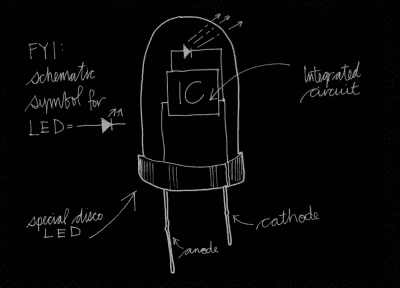 FYI:
schematic
symbol for
LED=
IC
Integrated
circuit
special disco
LED
anode
cathode